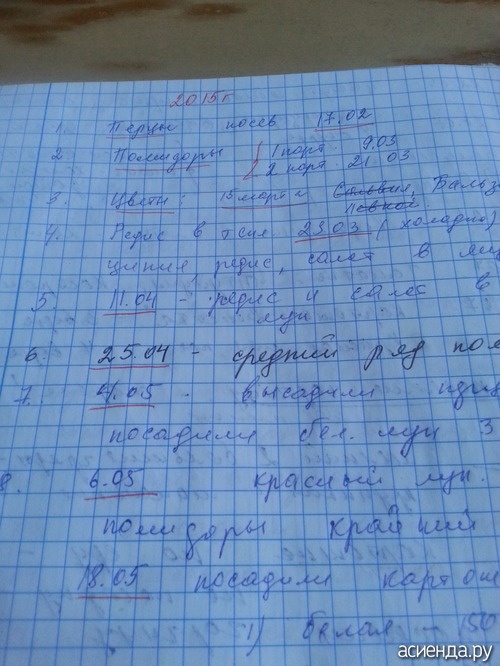 2015г
1. Перцы посев 17.02
2. Помидоры 1 парт. 9.03
2 парт. 21.03
3. Цветы: 15 марта Сальвия, Бальз
4. Редис в теп 23.03 (холодно)
редис, салат в ящ
5. 11.04 - редис и салат в
6. 25.04 - средний ряд пом
7. 4.05 - высадили
посадили бел. лук 3
8. 6.05 красный лук.
помидоры крайний
18.05 посадили картош
1) белая - 150
асиенда.ру